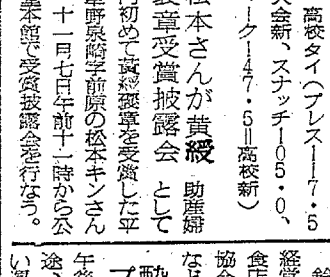 高校タイ(プレス一一七・5
大会新、スナッチ一〇5・0、
ーク一4７・5＝高校新)
松本さんが黄綬
褒章受賞披露会
助産婦
として
初めて黄綬褒章を受賞した平
草野泉崎字前原の松本キンさん
十一日七日午前十一時から公
本館で受賞披露会を行なう。
経営
食店
協会
なに
酔
プ
午後
途、
い運